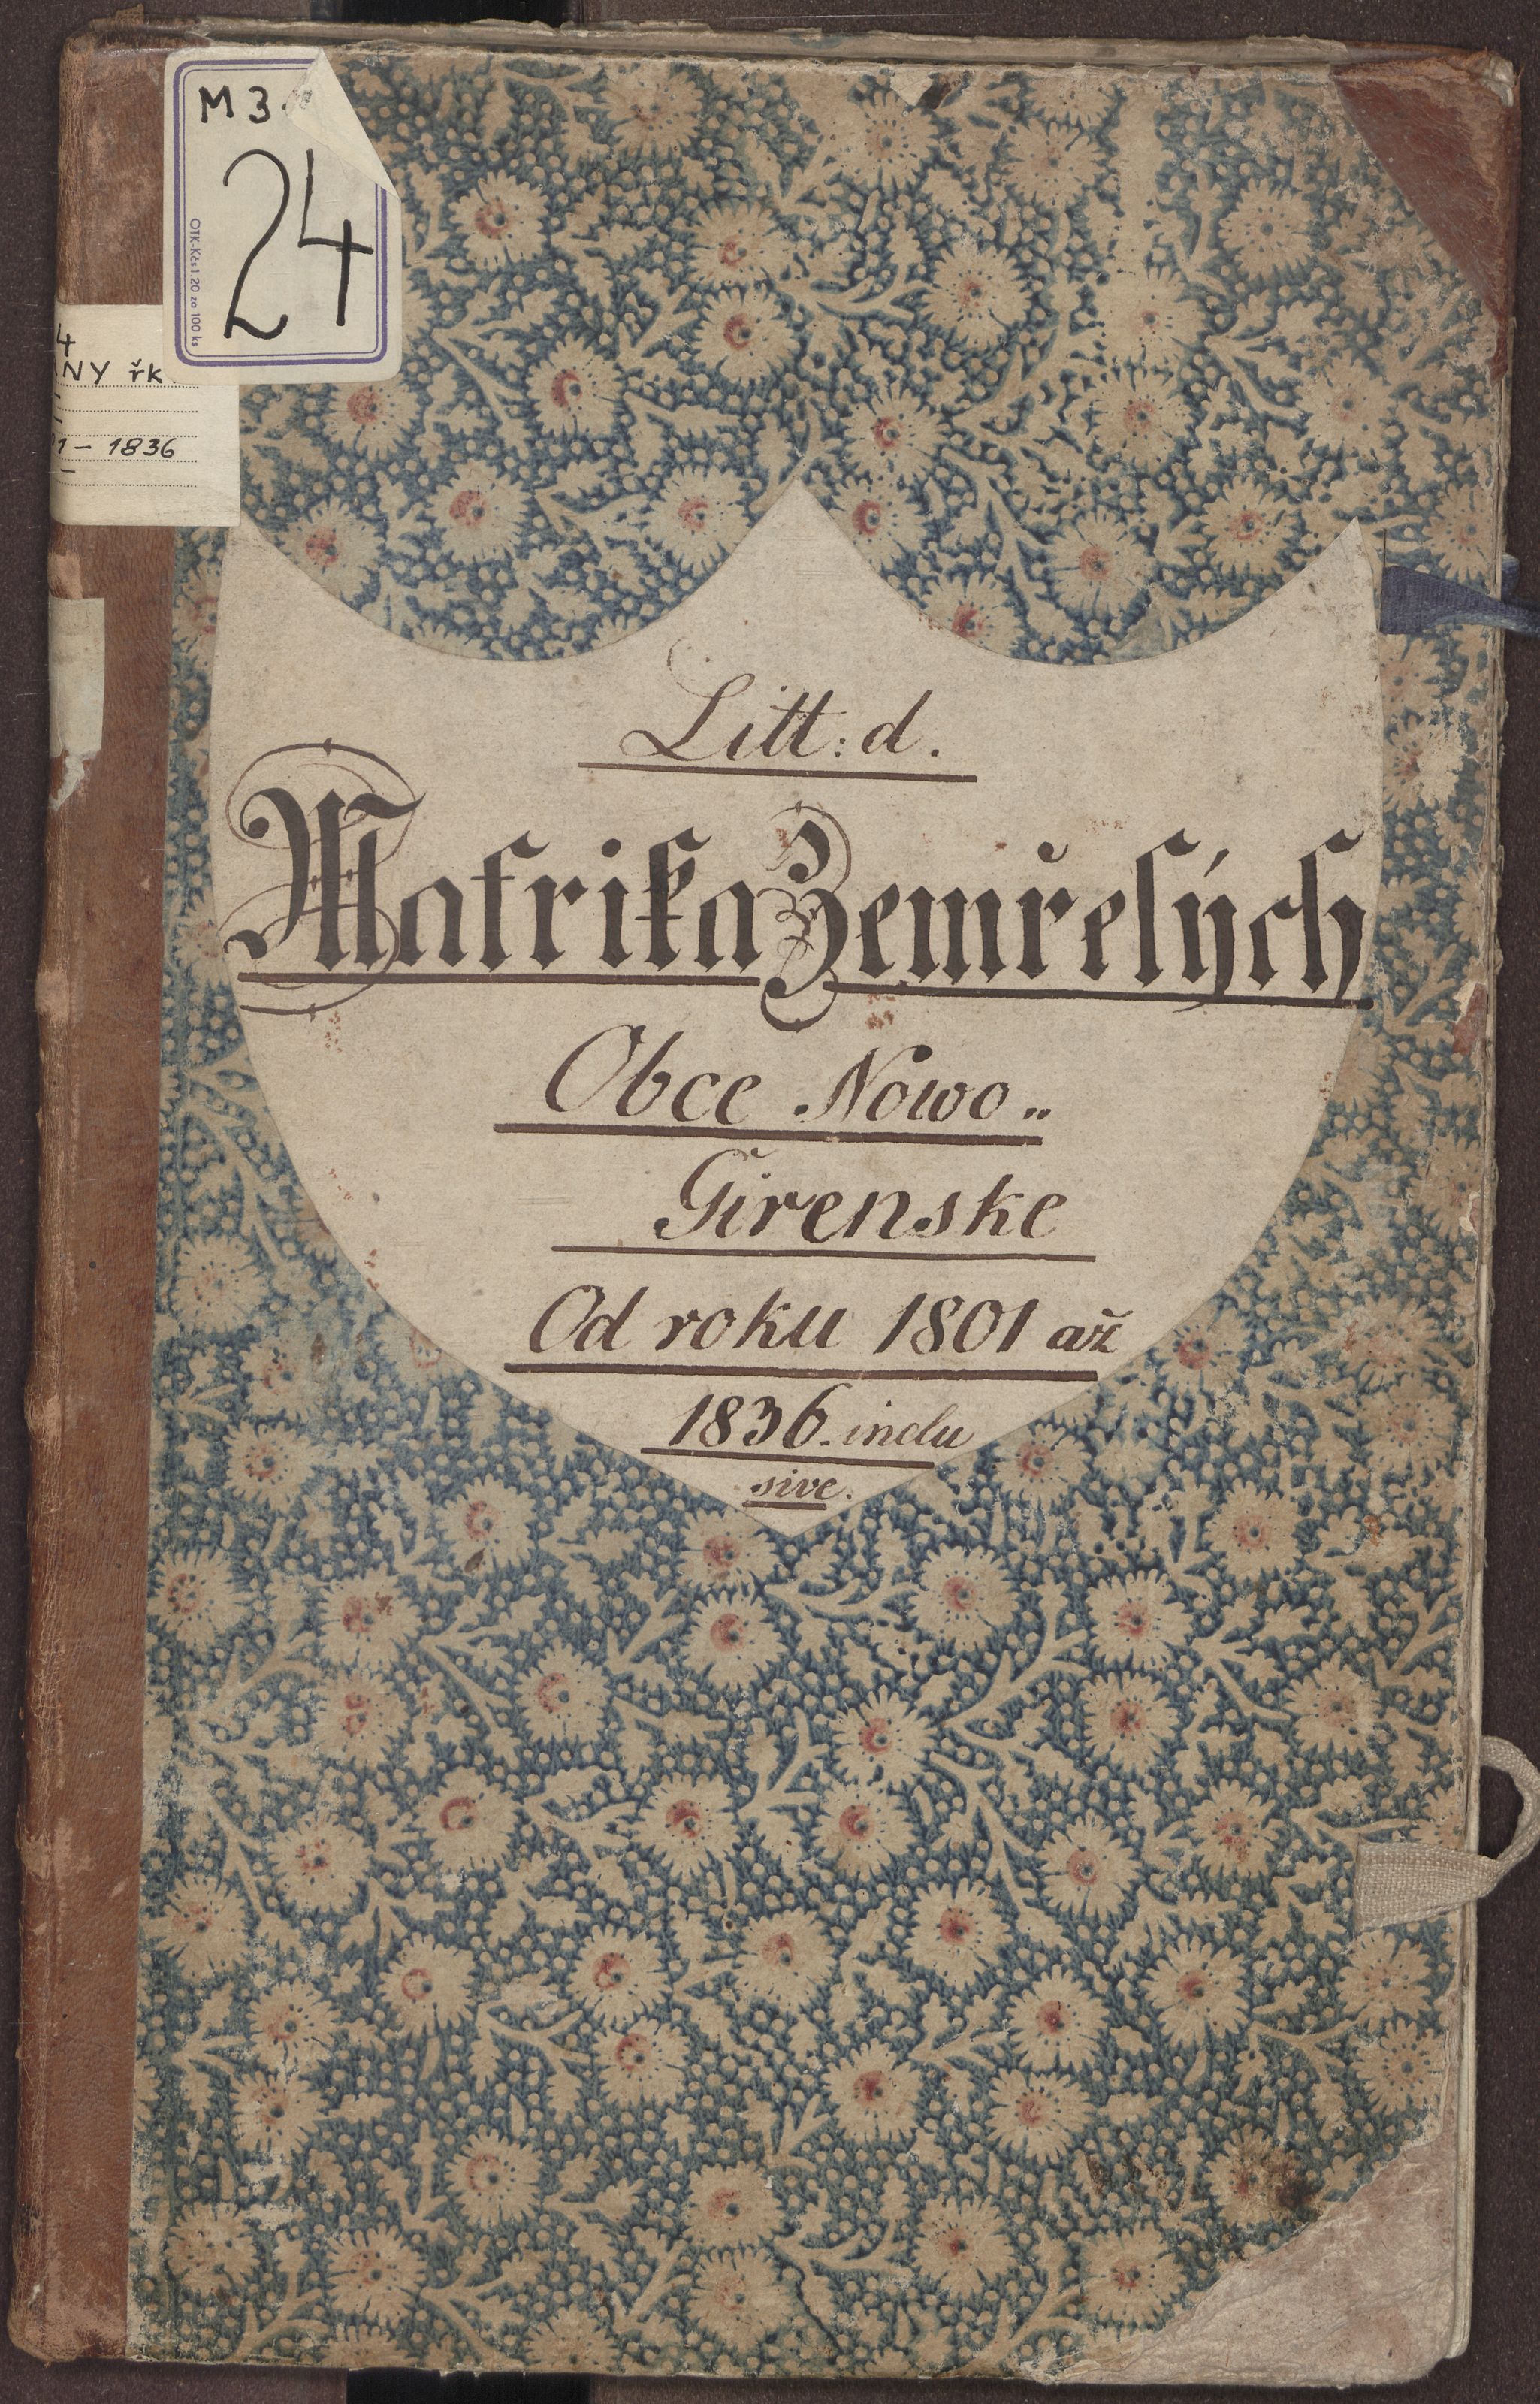 M 3
24
OTK-Kčs 1.20 za 100 ks
4
NY řk.
1 – 1836
Litt: d.
Matrika Zemřelých
Obce Nowo„
Girenske
Od roku 1801 až
1836. inclu
sive.